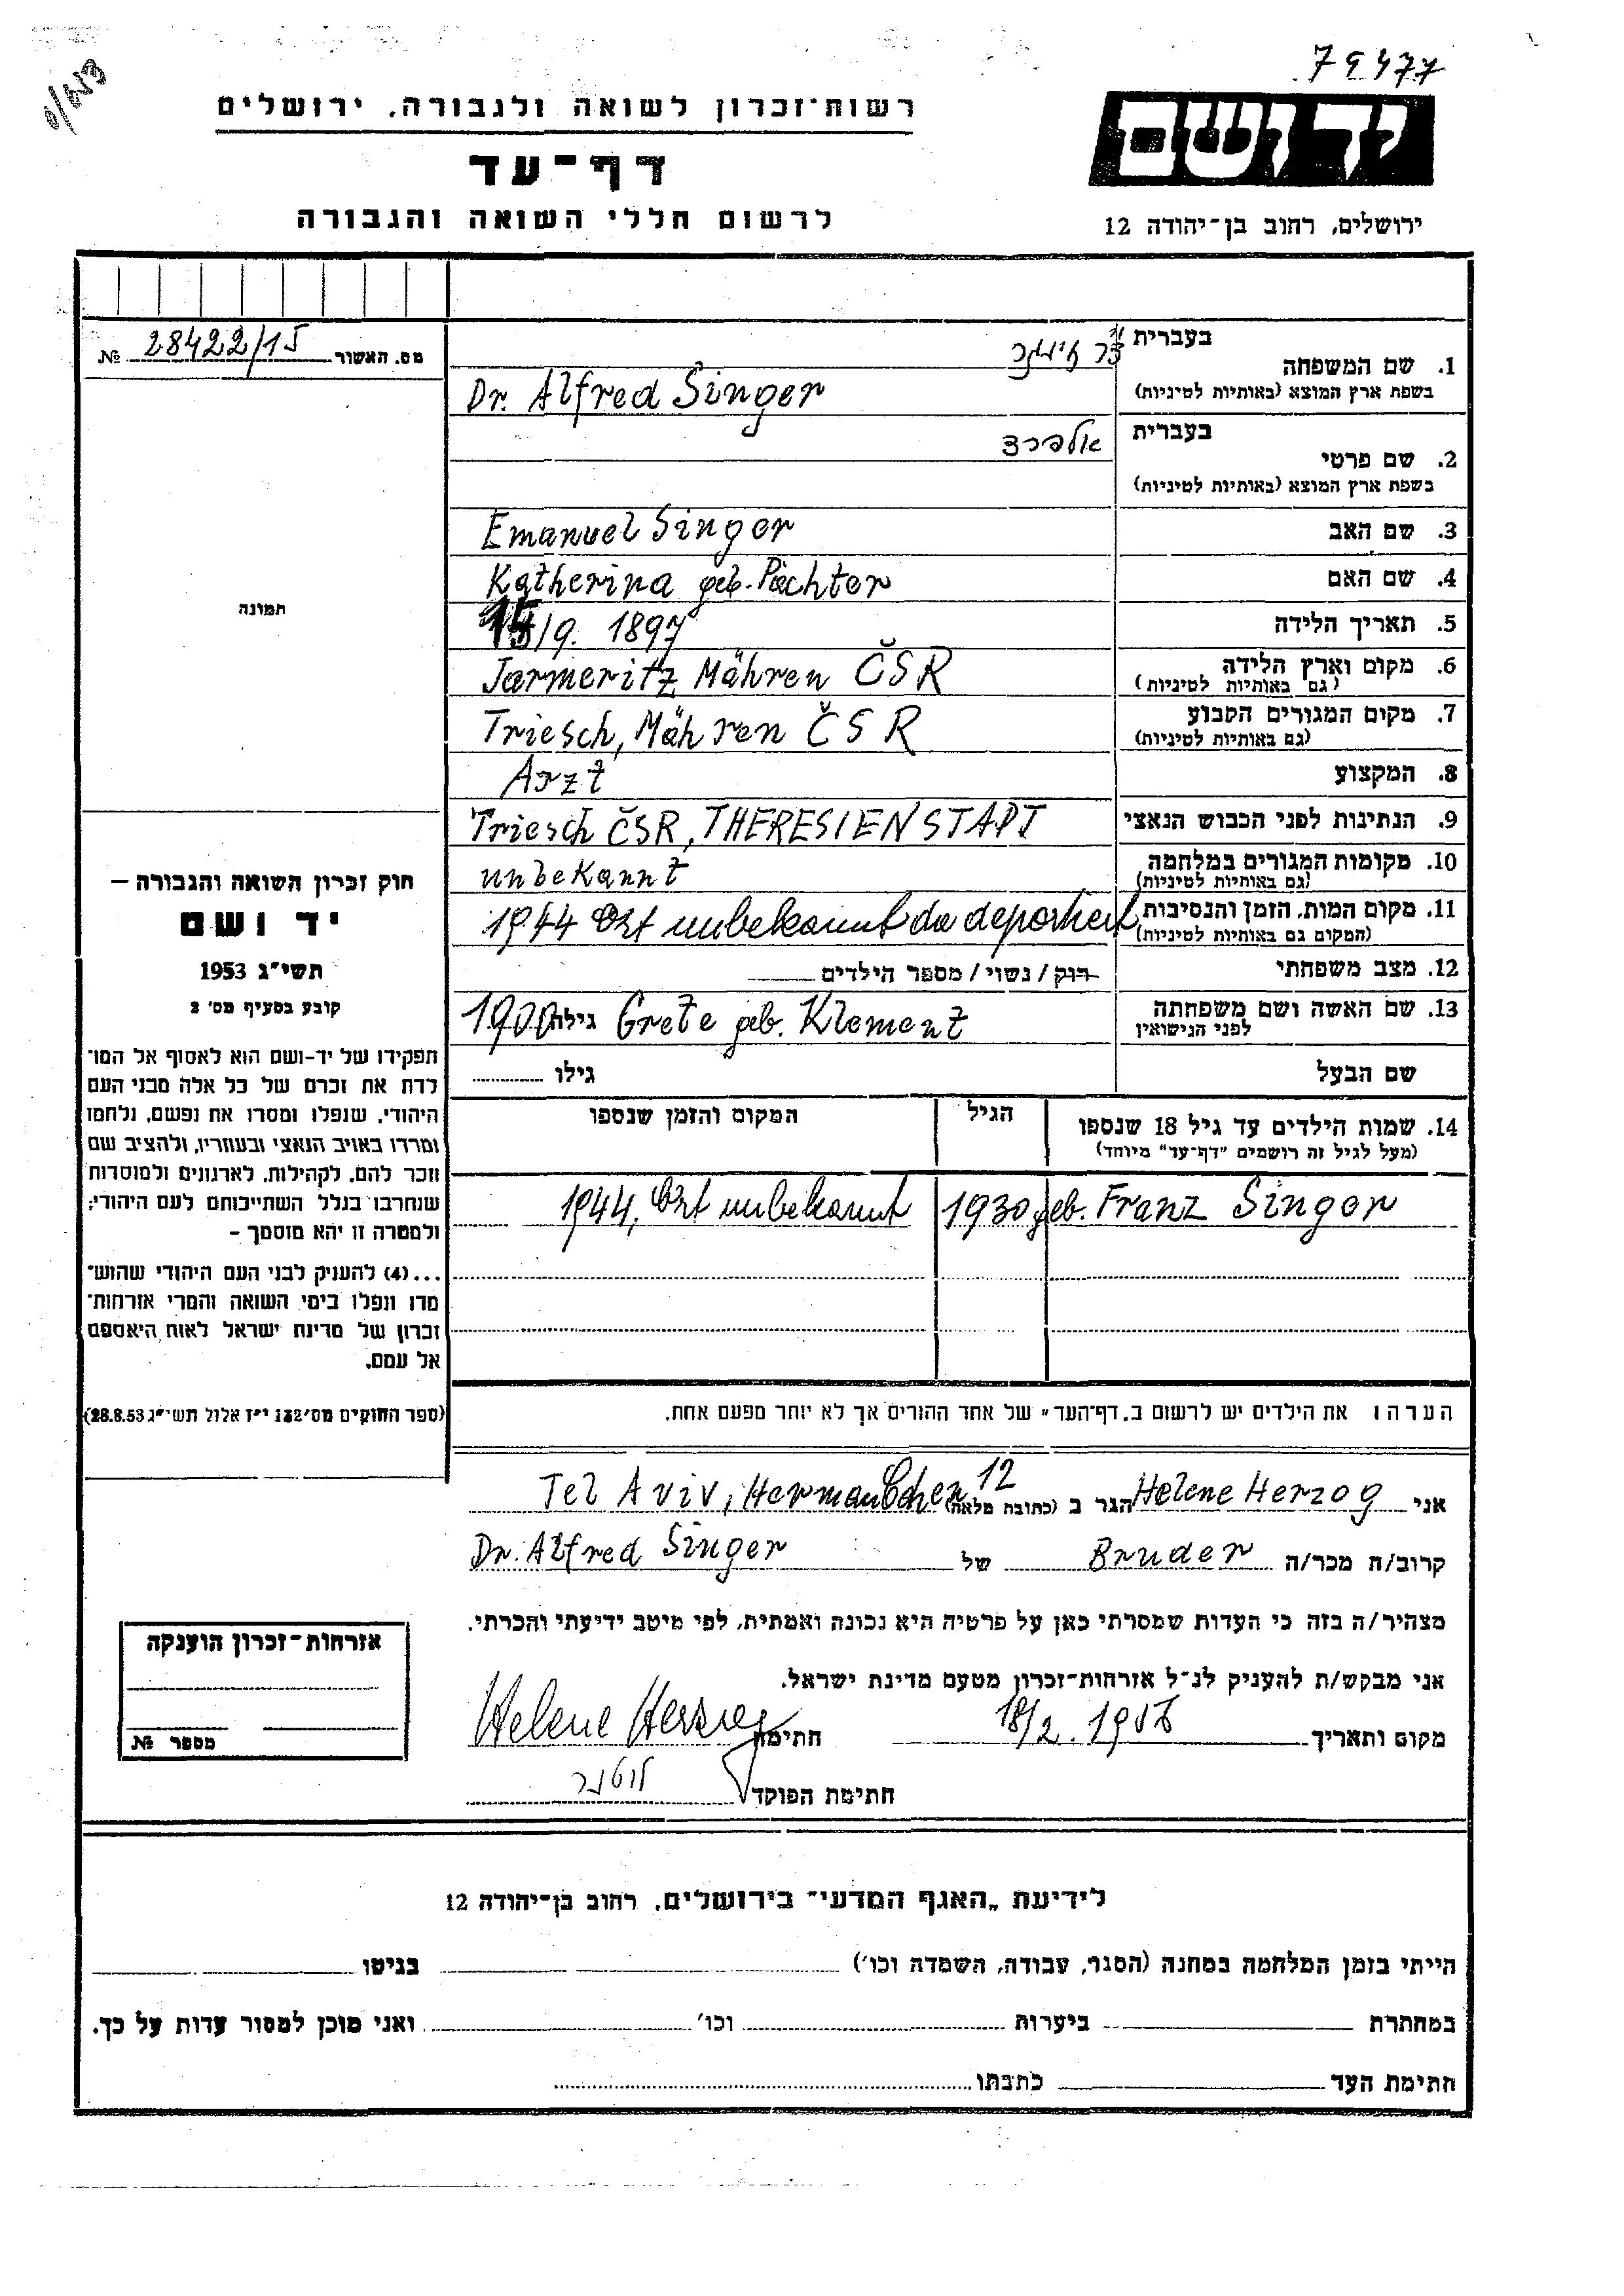 79477
רשות־זכרון לשואה ולגבורה, ירושלים
יד ושם
דף־עד
לרשום חללי השואה והגבורה
ירושלים, רחוב בן־יהודה 12
מס. האשור 28422/15 №
1. שם המשפחה
בעברית
בשפת ארץ המוצא (באותיות לטיניות)
Dr. Alfred Singer
2. שם פרטי
בעברית אלפרד
בשפת ארץ המוצא (באותיות לטיניות)
3. שם האב Emanuel Singer
4. שם האם Katherina geb. Pächter
5. תאריך הלידה 15/9. 1897
6. מקום וארץ הלידה Jarmeritz Mähren ČSR
(גם באותיות לטיניות)
7. מקום המגורים הקבוע Triesch, Mähren ČSR
(גם באותיות לטיניות)
8. המקצוע Arzt
9. הנתינות לפני הכבוש הנאצי Triesch ČSR, THERESIENSTADT
10. מקומות המגורים במלחמה unbekannt
(גם באותיות לטיניות)
11. מקום המות, הזמן והנסיבות 1944 Ort unbekannt da deportiert
(המקום גם באותיות לטיניות)
12. מצב משפחתי רוק / נשוי / מספר הילדים
13. שם האשה ושם משפחתה Grete geb. Klement גילה 1900
לפני הנישואין
שם הבעל גילו
14. שמות הילדים עד גיל 18 שנספו הגיל המקום והזמן שנספו
(מעל לגיל זה רושמים "דף־עד" מיוחד)
Franz Singer geb. 1930 1944, Ort unbekannt
הערה: את הילדים יש לרשום ב"דף־העד" של אחד ההורים אך לא יותר מפעם אחת.
תמונה
חוק זכרון השואה והגבורה –
יד ושם
תשי"ג 1953
קובע בסעיף מס' 2
תפקידו של יד-ושם הוא לאסוף אל המו־
לדת את זכרם של כל אלה מבני העם
היהודי, שנפלו ומסרו את נפשם, נלחמו
ומרדו באויב הנאצי ובעוזריו, ולהציב שם
וזכר להם, לקהילות, לארגונים ולמוסדות
שנחרבו בגלל השתייכותם לעם היהודי;
ולמטרה זו יהא מוסמך –
...(4) להעניק לבני העם היהודי שהוש־
מדו ונפלו בימי השואה והמרי אזרחות־
זכרון של מדינת ישראל לאות היאספם
אל עמם.
(ספר החוקים מס' 132 י"ז אלול תשי"ג 28.8.53)
אני Helene Herzog הגר ב (כתובת מלאה) Tel Aviv, Hermann Cohen 12
קרוב/ה מכר/ה Bruder של Dr. Alfred Singer
מצהיר/ה בזה כי העדות שמסרתי כאן על פרטיה היא נכונה ואמתית, לפי מיטב ידיעתי והכרתי.
אני מבקש/ת להעניק לנ"ל אזרחות־זכרון מטעם מדינת ישראל.
מקום ותאריך 18/2. 1956 חתימה Helene Herzog
חתימת הפוקד
אזרחות־זכרון הוענקה
מספר №
לידיעת "האגף המדעי" בירושלים, רחוב בן־יהודה 12
הייתי בזמן המלחמה במחנה (הסגר, עבודה, השמדה וכו') בגיטו
במחתרת ביערות וכו' ואני מוכן למסור עדות על כך.
חתימת העד כתבתו